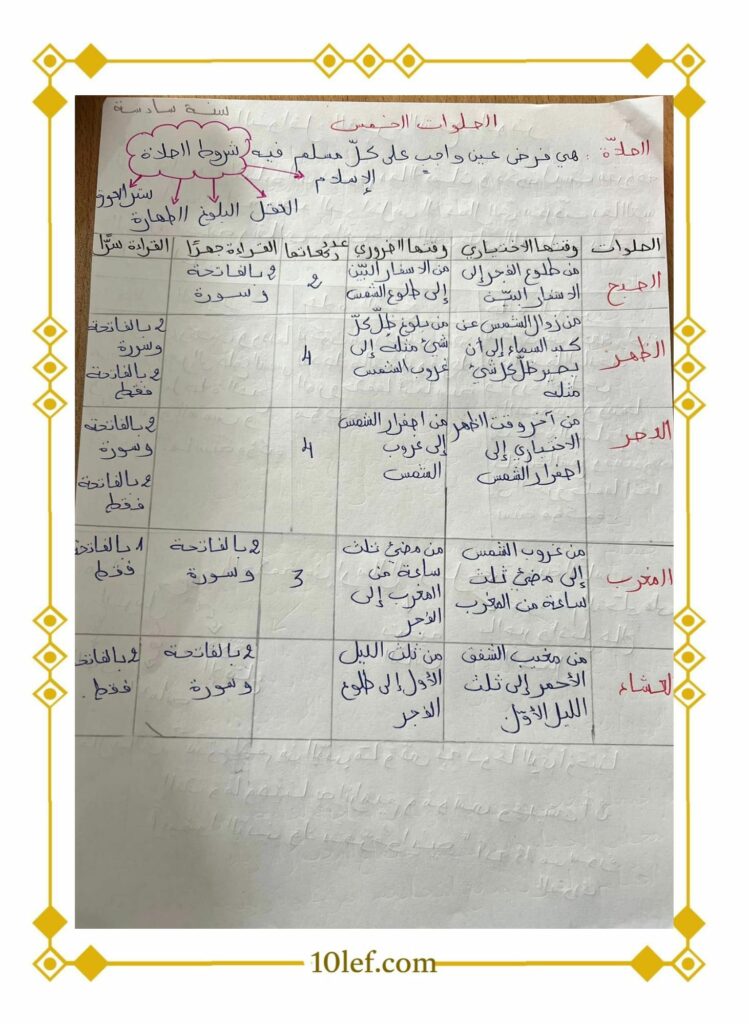 سنة سادسة
الصلوات الخمس
الصلاة : هي فرض عين واجب على كلّ مسلم فيه شروط الصلاة
الإسلام
ستر العورة
العقل البلوغ الطهارة
الصلوات وقتها الاختياري وقتها الضروري عدد ركعاتها القراءة جهرًا القراءة سرًّا
الصبح
من طلوع الفجر إلى
الاسفار البيّن
من الاسفار البيّن
إلى طلوع الشمس
2
2 بالفاتحة
وسورة
الظهر
من زوال الشمس عن
كبد السماء إلى أن
يصير ظلّ كل شيء
مثله
من بلوغ ظلّ كلّ
شيء مثله إلى
غروب الشمس
4
2 بالفاتحة
وسورة
2 بالفاتحة
فقط
العصر
من آخر وقت الظهر
الاختياري إلى
اصفرار الشمس
من اصفرار الشمس
إلى غروب
الشمس
4
2 بالفاتحة
وسورة
2 بالفاتحة
فقط
المغرب
من غروب الشمس
إلى مضيّ ثلث
ساعة من المغرب
من مضيّ ثلث
ساعة من
المغرب إلى
الفجر
3
2 بالفاتحة
وسورة
1 بالفاتحة
فقط
العشاء
من مغيب الشفق
الأحمر إلى ثلث
الليل الأوّل.
من ثلث الليل
الأول إلى طلوع
الفجر
2 بالفاتحة
وسورة
2 بالفاتحة
فقط.
10lef.com